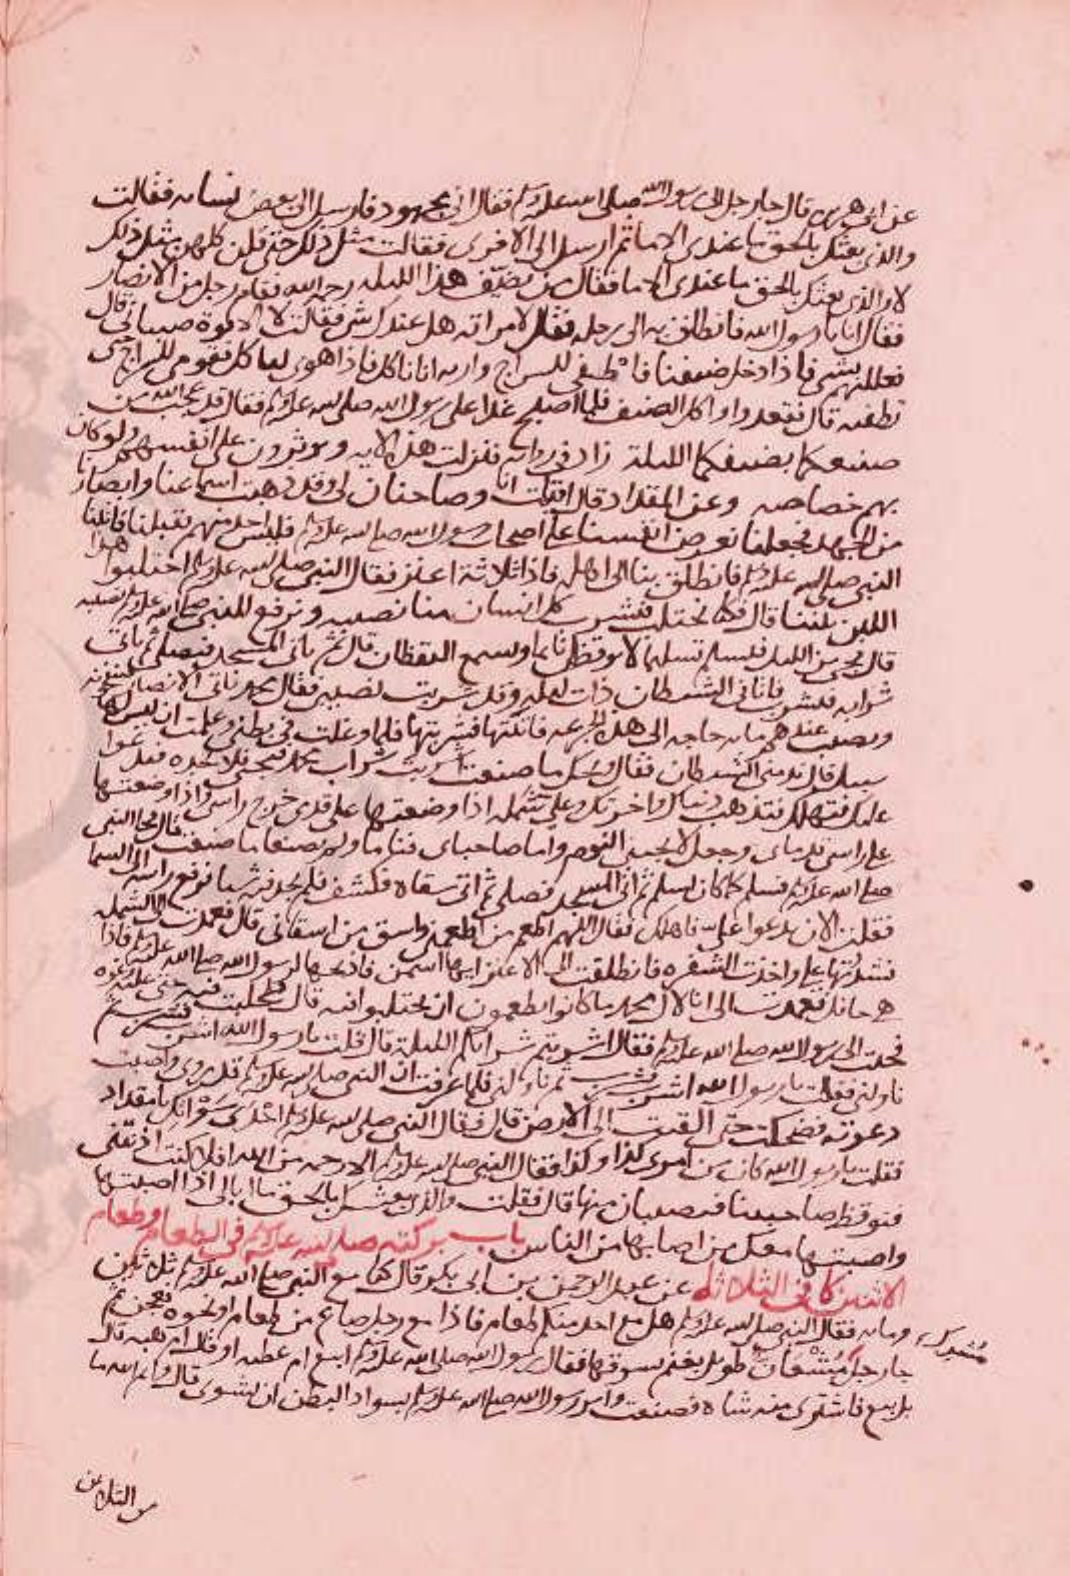 عن ابى هريره قال جا رجل الى رسول الله صلى الله عليه وسلم فقال انى مجهود فارسل الى بعض نسايه فقالت
والذى بعثك بالحق ما عندى الا ما ثم ارسل الى الاخرى فقالت مثل ذلك حتى قلن كلهن مثل ذلك
لا والذى بعثك بالحق ما عندى الا ما فقال من يضيف هذا الليله رحمه الله فقام رجل من الانصار
فقال انا يا رسول الله فانطلق به الى رحله فقال لامراته هل عندك شى فقالت لا الا قوة صبيانى قال
فعلليهم بشى فاذا دخل ضيفنا فاطفى السراج واريه انا ناكل فاذا هوى لياكل فقومى للسراج حتى
تطفيه قال فقعدوا واكل الضيف فلما اصبح غدا على رسول الله صلى الله عليه وسلم فقال قد عجب الله من
صنيعكما بضيفكما الليلة زاد فى روايه فنزلت هذه الايه ويوثرون على انفسهم ولو كان
بهم خصاصه وعن المقداد قال اقبلت انا وصاحبان لى وقد ذهبت اسماعنا وابصارنا
من الجهد فجعلنا نعرض انفسنا على اصحاب رسول الله صلى الله عليه وسلم فليس احد منهم يقبلنا فاتينا
النبى صلى الله عليه وسلم فانطلق بنا الى اهله فاذا ثلاثة اعنز فقال النبى صلى الله عليه وسلم احتلبوا هذا
اللبن بيننا قال فكنا نحتلب فيشرب كل انسان منا نصيبه ونرفع للنبى صلى الله عليه وسلم نصيبه
قال فيجى من الليل فيسلم تسليما لا يوقظ نايما ويسمع اليقظان قال ثم ياتى المسجد فيصلى ثم ياتى
شرابه فيشرب فاتانى الشيطان ذات ليله وقد شربت نصيبى فقال محمد ياتى الانصار فيتحفونه
ويصيب عندهم ما به حاجه الى هذه الجرعه فاتيتها فشربتها فلما وغلت فى بطنى وعلمت ان ليس اليها
سبيل قال ندمنى الشيطان فقال ويحك ما صنعت اشربت شراب محمد فيجى فلا يجده فيدعوا
عليك فتهلك فتذهب دنياك واخرتك وعلى شمله اذا وضعتها على قدمى خرج راسى واذا وضعتها
على راسى قدماى وجعل لا يجينى النوم واما صاحباى فناما ولم يصنعا ما صنعت قال فجا النبى
صلى الله عليه وسلم فسلم كما كان يسلم ثم اتى المسجد فصلى ثم اتى سقاه فكشف فلم يجد فيه شيا فرفع راسه الى السما
فقلت الان يدعوا على فاهلك فقال اللهم اطعم من اطعمنى واسق من اسقانى قال فعمدت الى الشمله
فشددتها على واخذت الشفره فانطلقت الى الاعنز ايها اسمن فاذبحها لرسول الله صلى الله عليه وسلم فاذا
هى حافل فعمدت الى انا لال محمد ما كانوا يطمعون ان يحتلبوا فيه قال فحلبت فيه حتى علته رغوه
فجيت الى رسول الله صلى الله عليه وسلم فقال اشربتم شرابكم الليلة قال قلت يا رسول الله اشرب فشرب ثم
ناولنى فقلت يا رسول الله اشرب فشرب ثم ناولنى فلما عرفت ان النبى صلى الله عليه وسلم قد روى واصبت
دعوته ضحكت حتى القيت الى الارض قال فقال النبى صلى الله عليه وسلم احدى سواتك يا مقداد
فقلت يا رسول الله كان من امرى كذا وكذا فقال النبى صلى الله عليه وسلم الا رحمه من الله افلا كنت اذنتنى
فنوقظ صاحبينا فيصيبان منها قال فقلت والذى بعثك بالحق ما ابالى اذا اصبتها
واصبتها معك من اصابها من الناس باب بركته صلى الله عليه وسلم فى الطعام وطعام
الاثنين كافى الثلاثه عن عبد الرحمن بن ابى بكر قال كنا مع النبى صلى الله عليه وسلم ثلاثين
ومايه فقال النبى صلى الله عليه وسلم هل مع احد منكم طعام فاذا مع رجل صاع من طعام او نحوه فعجن ثم
جا رجل مشرك مشعان طويل بغنم يسوقها فقال رسول الله صلى الله عليه وسلم ابيع ام عطيه او قال ام هبه قال
بل بيع فاشترى منه شاة فصنعت وامر رسول الله صلى الله عليه وسلم بسواد البطن ان يشوى قال وايم الله ما
من الثلاثين